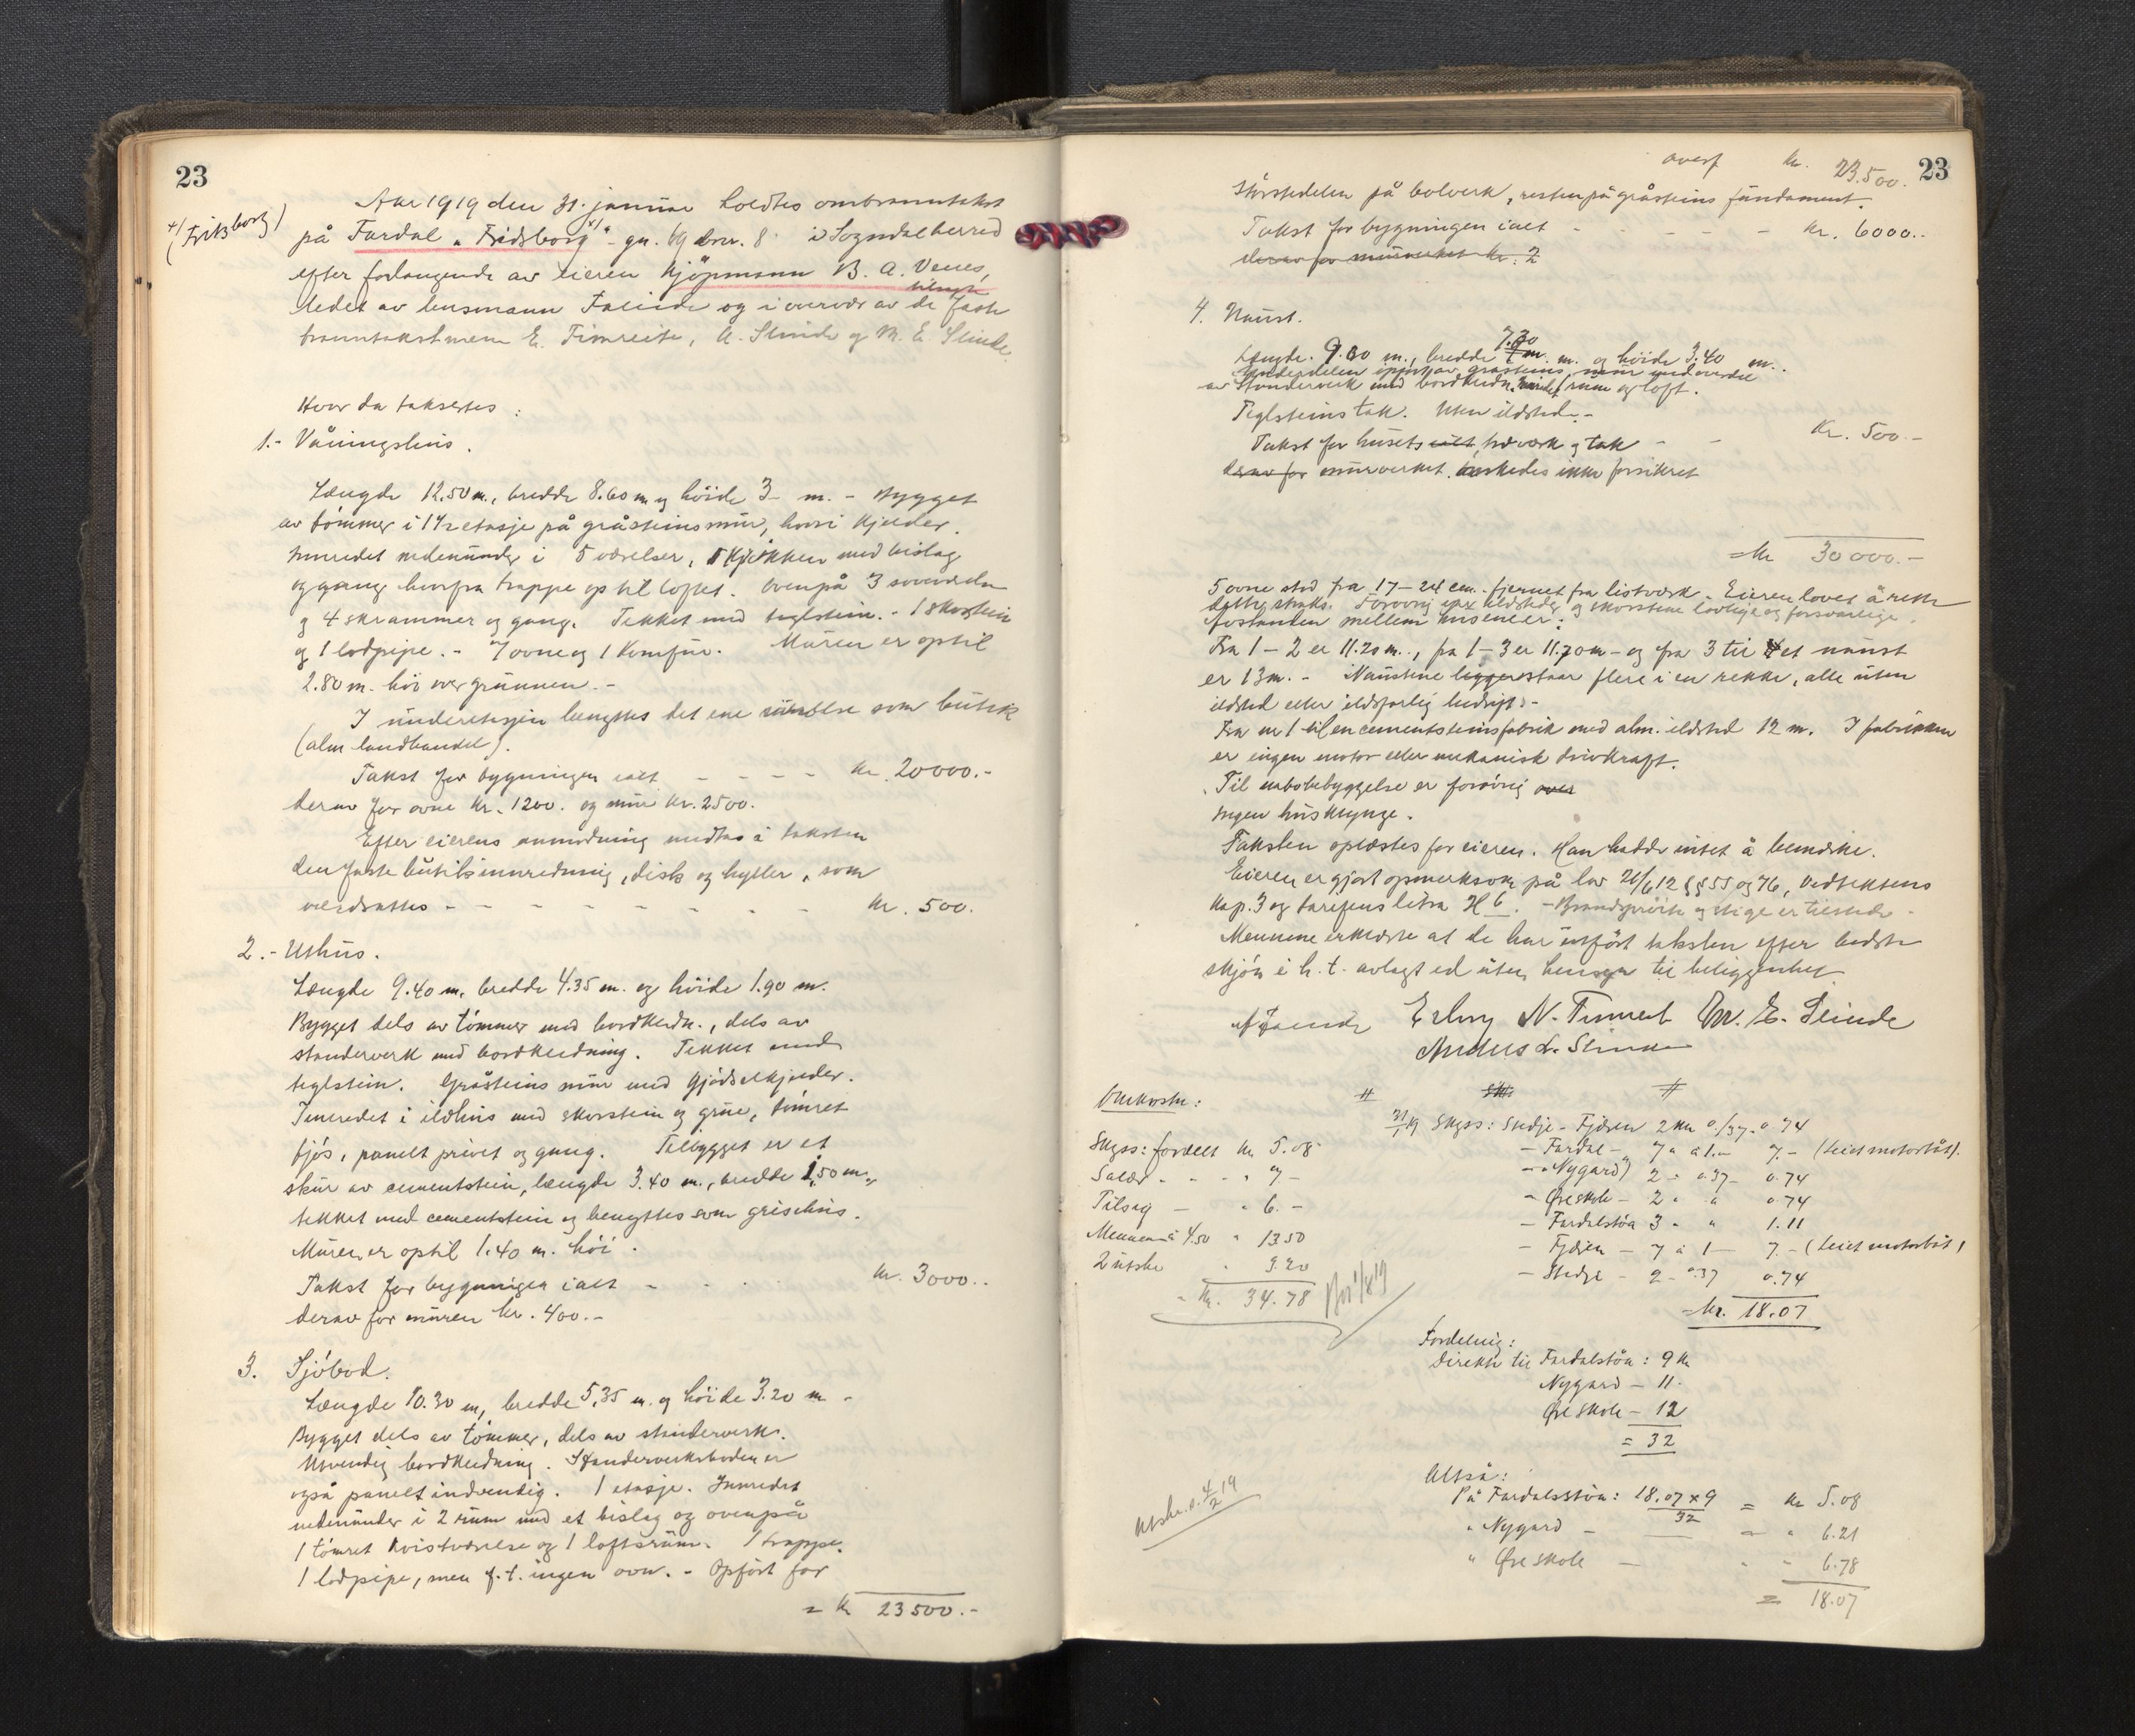 23
Aar 1919 den 31. januar holdtes ombranntakst
x/ (Fritsborg)
på Fardal „Fridsborg" x/ - gn. 69 brn. 8 i Sogndal herred
efter forlangende av eieren kjöpmann B. A. Venes,
ledet av lensmann Faleide og i overvær av de faste
branntakstmenn E. Timreite, A. Slinde og M. E. Slinde.
Hvor da takseres:
1.- Våningshus.
Længde 12.50 m., bredde 8.60 m og höide 3 m. - Bygget
av tömmer i 1 1/2 etasje på gråsteinsmur, hvori kjelder.
Innredet nedenunder i 5 værelser, 1 kjökken med bislag
og gang hvorfra trappe op til loftet. Ovenpå 3 soveværelser
og 4 skrammer og gang. Tekket med teglstein. - 1 skorstein
og 1 lodpipe. - 7 ovne og 1 komfur. Muren er optil
2.80 m. höi over grunnen. -
I underetasjen benyttes det ene værelse som butik
(alm landhandel).
Takst for bygningen ialt - - - - kr. 20000.-
derav for ovne kr. 1200. og mur kr. 2500.
Efter eierens anmodning medtas i taksten
den faste butiksinnredning, disk og hyller, som
værdsattes - - - - - - - - kr. 500.
2.- Uthus.
Længde 9.40 m. bredde 4.35 m. og höide 1.90 m.
Bygget dels av tömmer med bordkledn., dels av
standerverk med bordkledning. Tekket med
teglstein. Gråsteins mur med gjödselkjelder.
Innredet i ildhus med skorstein og grue, tömret
fjös, panelt privet og gang. Tilbygget er et
skur av cementstein, længde 3.40 m., bredde 1.50 m.,
tekket med cementstein og benyttes som grisehus.
Muren er optil 1.40 m. höi.
Takst for bygningen ialt - - . . kr. 3000..
derav for muren kr. 400.-
3. Sjöbod.
Længde 10.30 m, bredde 5.35 m. og höide 3.20 m -
Bygget dels av tömmer, dels av standerverk.
Utvendig bordkledning. Standerverksboden er
også panelt indvendig. 1 etasje. Innredet
nedenunder i 2 rum med et bislag og ovenpå
1 tömret kvistværelse og 1 loftsrum. 1 trappe.
1 lodpipe, men f.t. ingen ovn. - Opfört for
= kr 23500.-
23
overf kr. 23.500.
störstedelen på bolverk, resten på gråsteins fundament.
Takst for bygningen ialt - - - - - kr. 6000..
derav for murverket kr. 2
4. Naust.
Længde 9.60 m., bredde 7.30 m. og höide 3.40 m..
Underdelen opfört av gråsteins mur med overdel
av standerverk med bordkledn. Innredet 1 rum og loft.
Teglsteins tak. Uten ildsted.-
Takst for husets ialt, træverk og tak - - kr. 500.-
derav for murverket ønskedes ikke forsikret
= kr 30000.-
5 ovne stod fra 17-24 cm. fjernet fra listverk. Eieren lovet å rette
dette straks. Forövrig var ildsteder og skorstene lovlige og forsvarlige.
Avstanden mellem husene er:
Fra 1-2 er 11.20 m., fra 1-3 er 11.70 m - og fra 3 til et naust
er 13 m. - Naustene ligger staar flere i en rekke, alle uten
ildsted eller ildsfarlig bedrift. -
Fra nr 1 til en cementsteinsfabrik med alm. ildsted 12 m. I fabrikken
er ingen motor eller mekanisk drivkraft.
Til nabobebyggelse er forövrig over
Ingen husklynge.
Taksten oplæstes for eieren. Han hadde intet å bemærke.
Eieren er gjort opmerksom på lov 21/6 12 §§ 55 og 76, Vedtektens
kap. 3 og tarifens litra H 6. - Brandspröite og stige er tilstede -
Mennene erklærte at de har utfört taksten efter bedste
skjön i h. t. avlagt ed uten hensyn til beliggenhet
Erling N. Timreit M. E. Slinde
Anders L. Slinde
Omkostn:
Skyss: fordelt kr 5.08
Salær - - - " 7 -
Tilsyn - " 6. -
Mennene á 4.50 " 13.50
2 utskr " 3.20
= Kr. 34.78
31/1 19 Skyss: Stedje - Fjæren 2 km a/37. 0 74
- Fardal - 7 " á 1.- 7.- (leiet motorbåt).
- Nygard) 2 - " 37 - 0.74
- Øreskole - 2 " á 0.74
- Fardalstöa 3 " " 1.11
- Fjæren - 7 á 1 - 7.- (leiet motorbåt)
- Stedje - 2 - 0.37 0.74
= kr. 18.07
Fordeling:
Direkte til Fardalstöa: 9 km
Nygard - 11.
Øreskole - 12
= 32
Altså:
På Fardalstöa: 18.07 x 9 / 32 = kr 5.08
" Nygard - = " 6.21
" Øreskole - " " 6.78
= 18.07
Utskr. s. 4/2 19